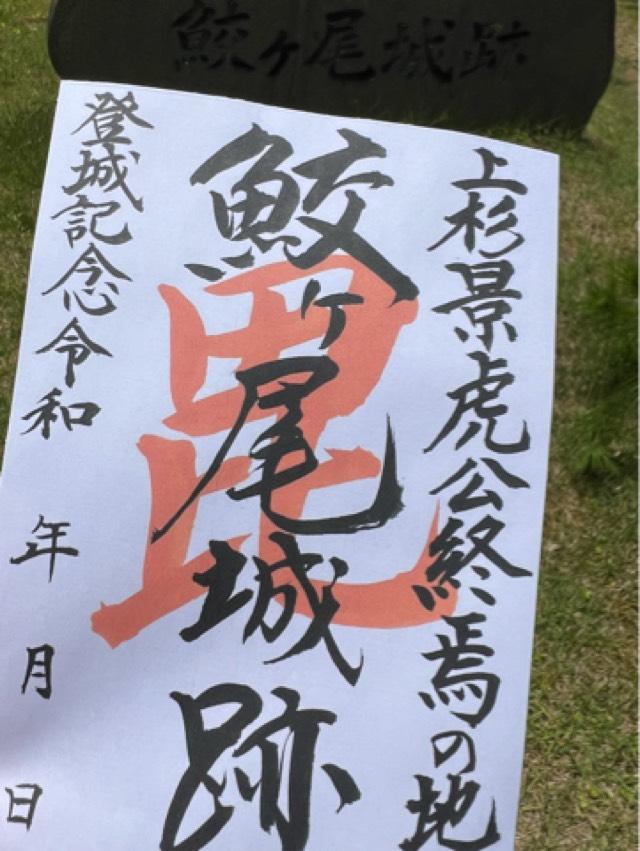 鮫ヶ尾城跡
上杉景虎公終焉の地
鮫ヶ尾城跡
毘
登城記念令和 年 月 日